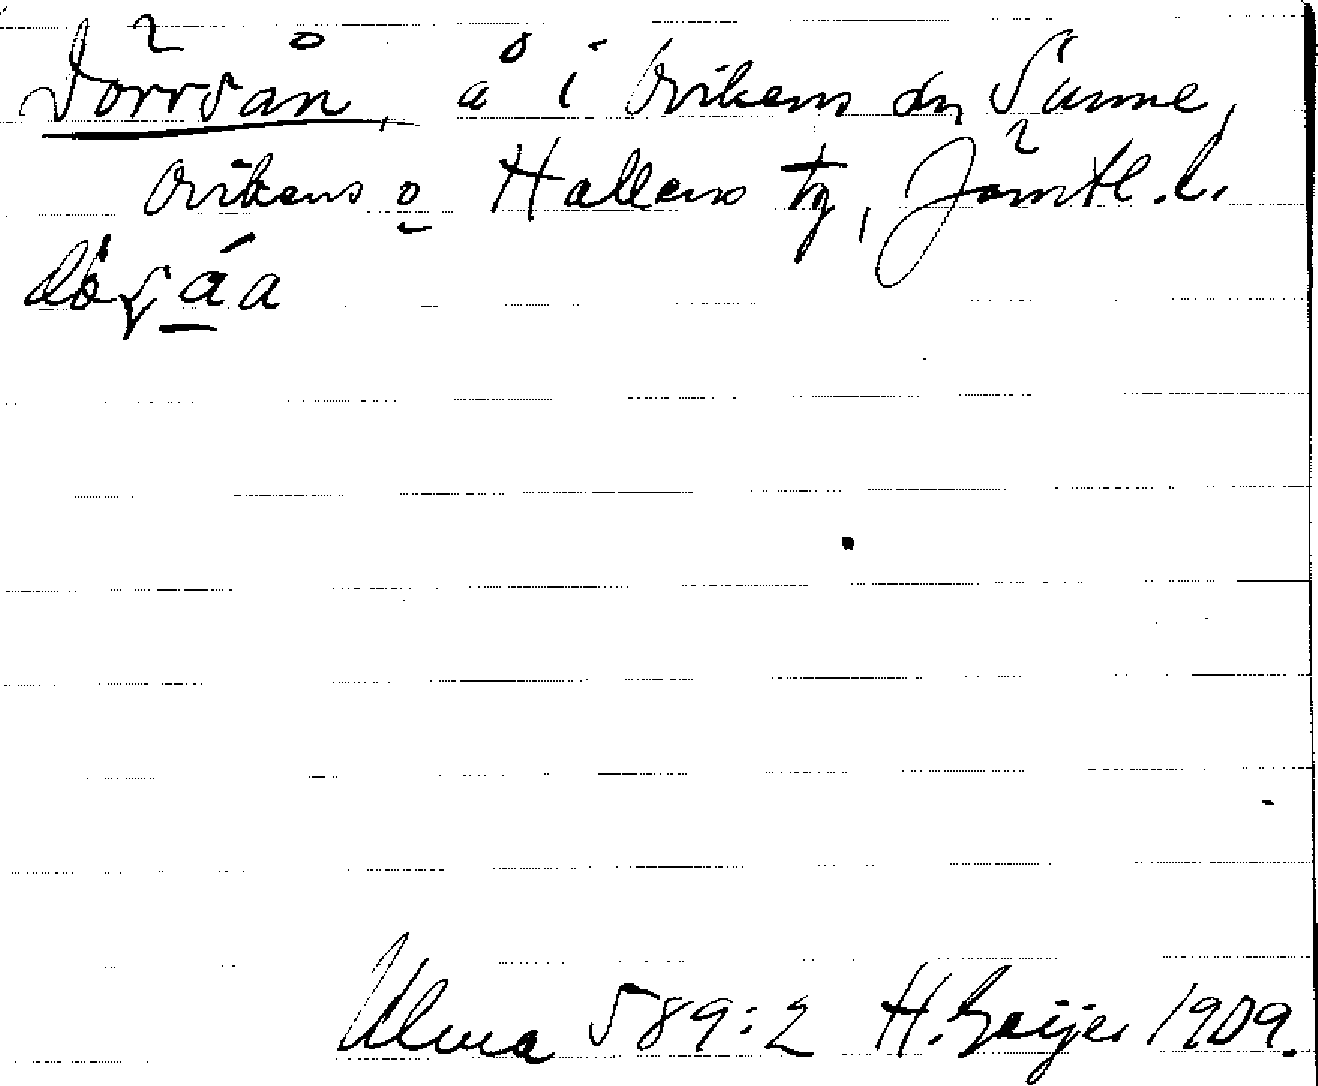 Dörrsån, å i Ovikens sn, Sunne,
Ovikens o Hallens tg, Jämtl. l.
Ulma 589:2 H. Geijer 1909.